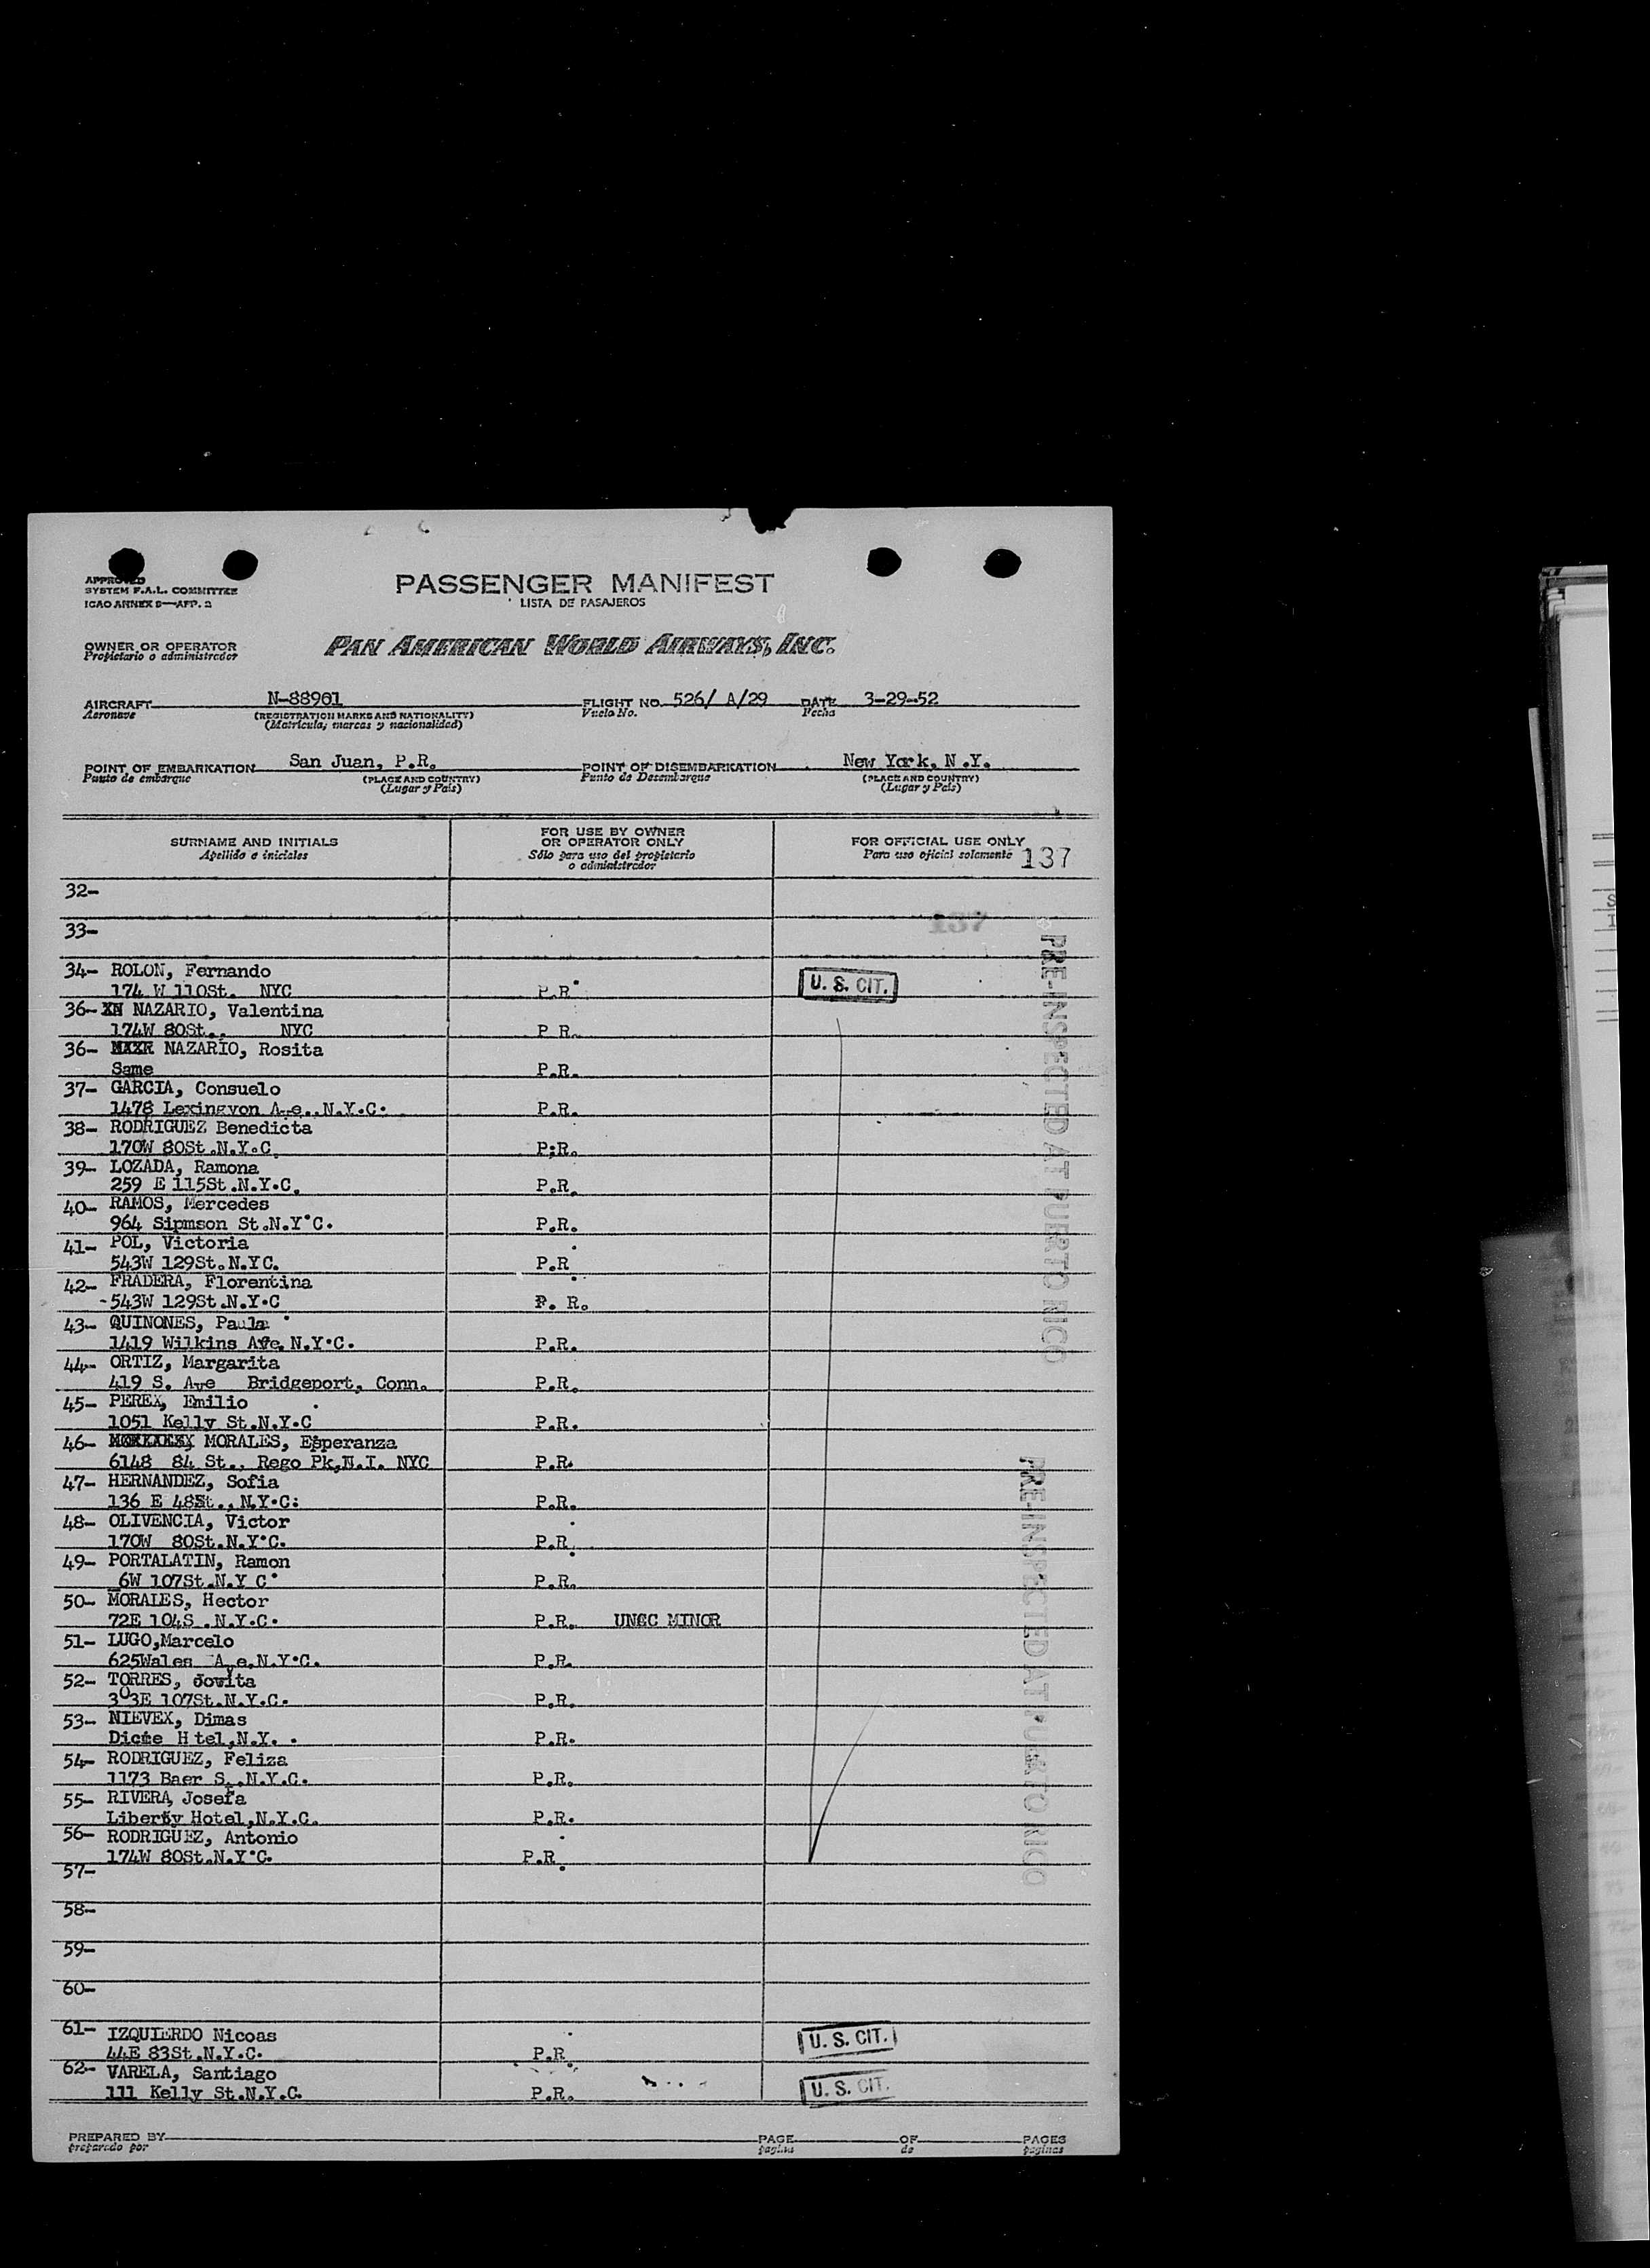 APPROVED
SYSTEM F.A.L. COMMITTEE
ICAO ANNEX 9—APP. 2
PASSENGER MANIFEST
LISTA DE PASAJEROS
OWNER OR OPERATOR
Propietario o administrador
PAN AMERICAN WORLD AIRWAYS, INC.
AIRCRAFT N-88901 FLIGHT NO. 526/ A/29 DATE 3-29-52
Aeronave (REGISTRATION MARKS AND NATIONALITY) Vuelo No. Fecha
(Matricula, marcas y nacionalidad)
POINT OF EMBARKATION San Juan, P.R. POINT OF DISEMBARKATION New York, N.Y.
Punto de embarque (PLACE AND COUNTRY) Punto de Desembarque (PLACE AND COUNTRY)
(Lugar y País) (Lugar y País)
SURNAME AND INITIALS FOR USE BY OWNER OR OPERATOR ONLY FOR OFFICIAL USE ONLY
Apellido e iniciales Sólo para uso del propietario o administrador Para uso oficial solamente 137
32-
33- 137
34- ROLON, Fernando
174 W 110St. NYC P.R. U. S. CIT.
36- XN NAZARIO, Valentina
174W 80St., NYC P.R.
36- NAZARIO, Rosita
Same P.R.
37- GARCIA, Consuelo
1478 Lexingvon A e., N.Y.C. P.R.
38- RODRIGUEZ Benedicta
170W 80St.N.Y.C. P;R.
39- LOZADA, Ramona
259 E 115St.N.Y.C. P.R.
40- RAMOS, Mercedes
964 Sipmson St.N.Y.C. P.R.
41- POL, Victoria
543W 129St.N.YC. P.R.
42- FRADERA, Florentina
-543W 129St.N.Y.C P. R.
43- QUINONES, Paula
1419 Wilkins Ave. N.Y.C. P.R.
44- ORTIZ, Margarita
419 S. Ave Bridgeport, Conn. P.R.
45- PEREX, Emilio
1051 Kelly St.N.Y.C P.R.
46- MORALES, Esperanza
6148 84 St., Rego Pk,N.I. NYC P.R.
47- HERNANDEZ, Sofia
136 E 48St., N.Y.C: P.R.
48- OLIVENCIA, Victor
170W 80St.N.Y.C. P.R.
49- PORTALATIN, Ramon
6W 107St.N.Y C. P.R.
50- MORALES, Hector
72E 104S .N.Y.C. P.R. UNCC MINOR
51- LUGO,Marcelo
625Wales A e.N.Y.C. P.R.
52- TORRES, Jovita
303E 107St.N.Y.C. P.R.
53- NIEVEX, Dimas
Dicie H tel,N.Y. . P.R.
54- RODRIGUEZ, Feliza
1173 Baer S .N.Y.C. P.R.
55- RIVERA, Josefa
Liberty Hotel,N.Y.C. P.R.
56- RODRIGUEZ, Antonio
174W 80St.N.Y.C. P.R.
57-
58-
59-
60-
61- IZQUIERDO Nicoas
44E 83St.N.Y.C. P.R. U. S. CIT.
62- VARELA, Santiago
111 Kelly St.N.Y.C. P.R. U. S. CIT.
PREPARED BY PAGE OF PAGES
preparado por página de páginas
PRE-INSPECTED AT PUERTO RICO
PRE-INSPECTED AT PUERTO RICO